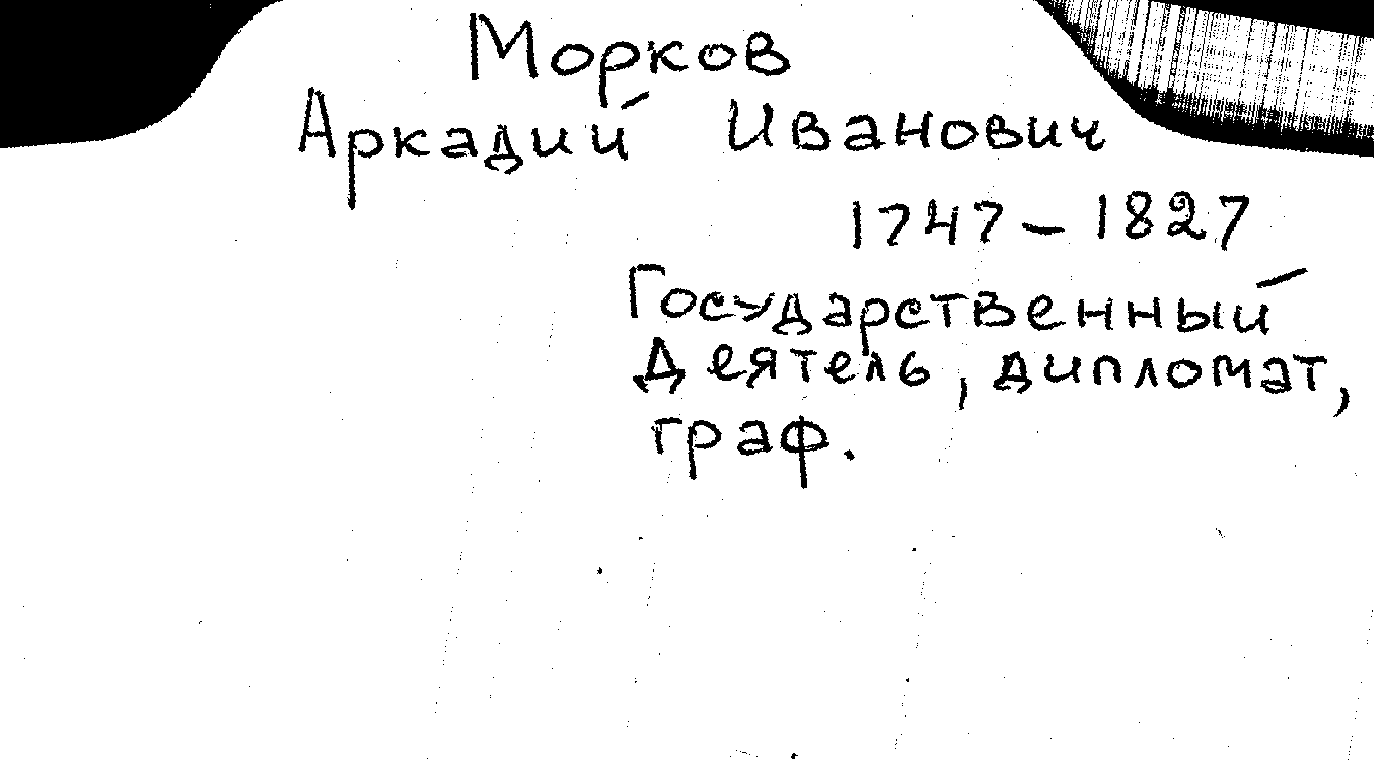 Морков
Аркадий Иванович
1747 – 1827
Государственный
деятель, дипломат,
граф.